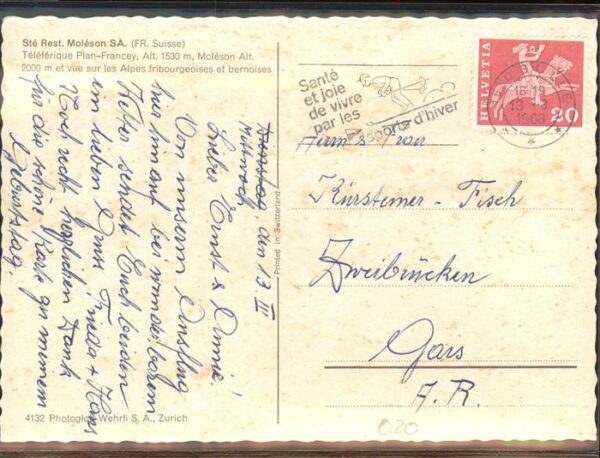 Sté Rest. Moléson SA. (FR. Suisse)
Téléférique Plan-Francey, Alt. 1530 m, Moléson Alt.
2000 m et vue sur les Alpes fribourgeoises et bernoises
Mittwoch, den 13. III
Lieber Ernst & Annie!
Von unserm Ausflug
hier hinauf bei wunderbarem
Wetter sendet Euch beiden
ein lieben Gruss Frieda + Hans
Noch recht herzlichen Dank
für die schöne Karte zu meinem
Geburtstag.
4132 Photoglob-Wehrli S. A., Zurich
Printed in Switzerland
Santé
et joie
de vivre
par les
sports d'hiver
18-19
13
1968
HELVETIA
20
Herrn & Frau
Kürsteiner - Fisch
Zweibrücken
Gais
A. R.
0.20